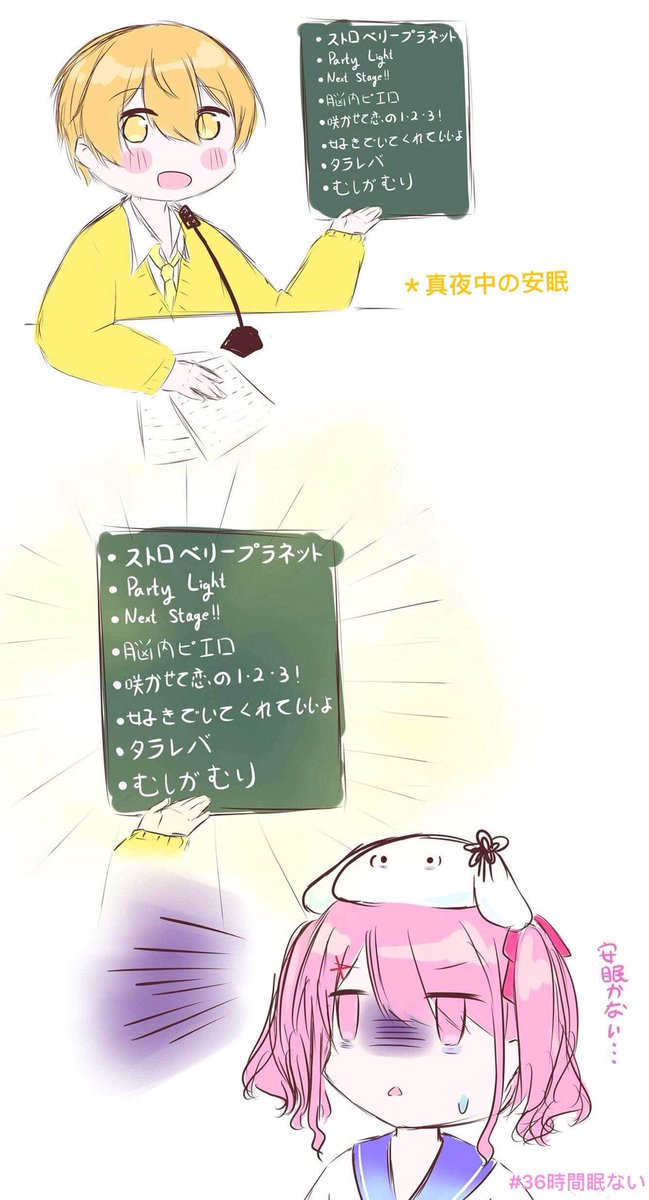 ・ストロベリープラネット
・Party Light
・Next Stage!!
・脳内ピエロ
・咲かせて恋の1・2・3!
・好きでいてくれていいよ
・タラレバ
・むしがむり
*真夜中の安眠
・ストロベリープラネット
・Party Light
・Next Stage!!
・脳内ピエロ
・咲かせて恋の1・2・3!
・好きでいてくれていいよ
・タラレバ
・むしがむり
安眠がない…
#36時間眠ない